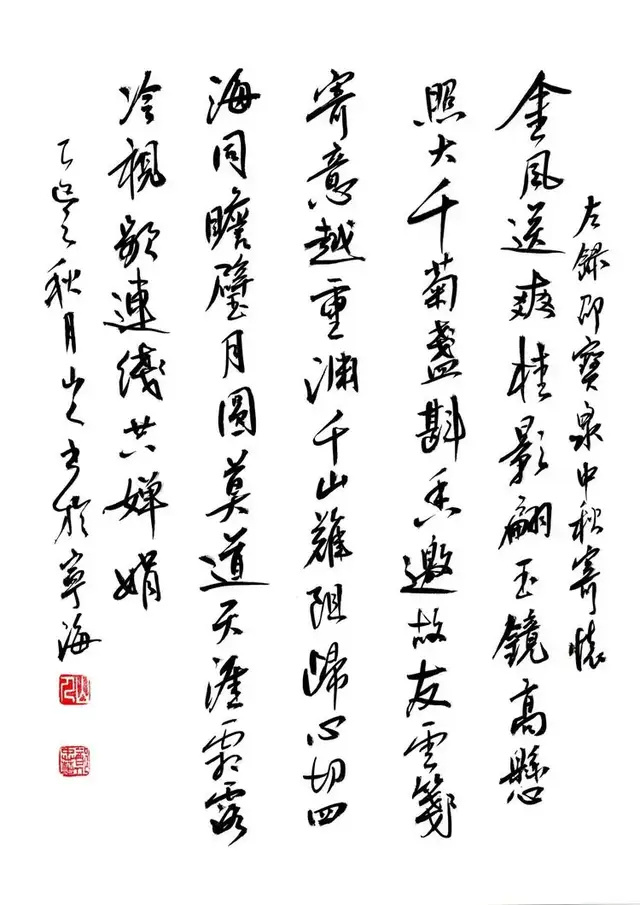 左錄邵寶泉中秋寄懷
金風送爽桂影翩玉鏡高懸
照大千菊盞斟香邀故友雲箋
寄意越重渊千山難阻歸心切四
海同瞻璧月圓莫道天涯霜露
冷視頻連綫共嬋娟
乙巳之秋月山人书於寧海